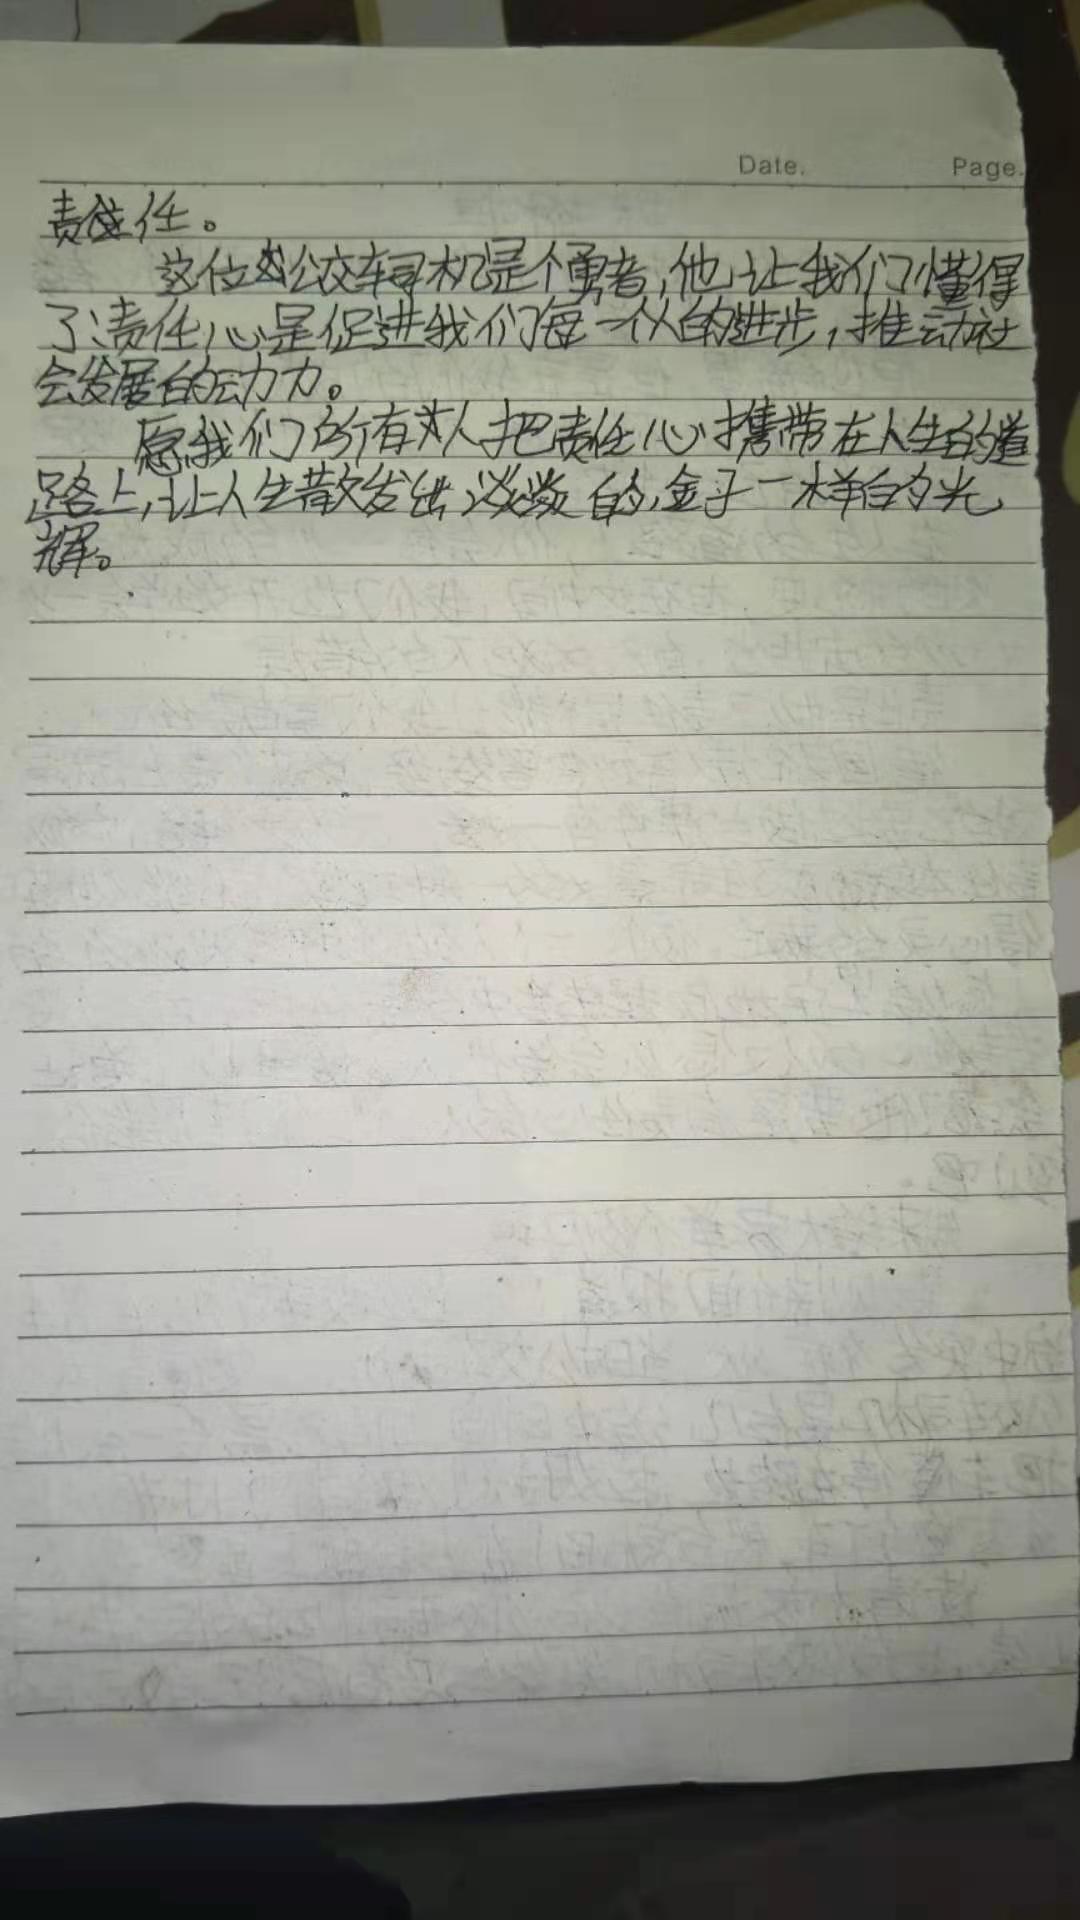 Date. Page.
责任。
这位公交车司机是个勇者,他让我们懂得
了:责任心是促进我们每一个人的进步,推动社
会发展的动力。
愿我们所有人把责任心携带在人生的道
路上,让人生散发出淡淡的,金子一样的光
辉。